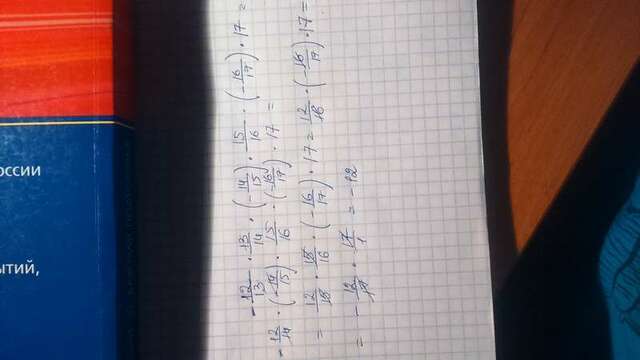 оссии
ытий,
-12/13 · 13/14 · (-14/15) · 15/16 · (-16/17) · 17 =
-12/14 · (-14/15) · 15/16 · (-16/17) · 17 =
= 12/15 · 15/16 · (-16/17) · 17 = 12/16 · (-16/17) · 17 =
= -12/17 · 17/1 = -12